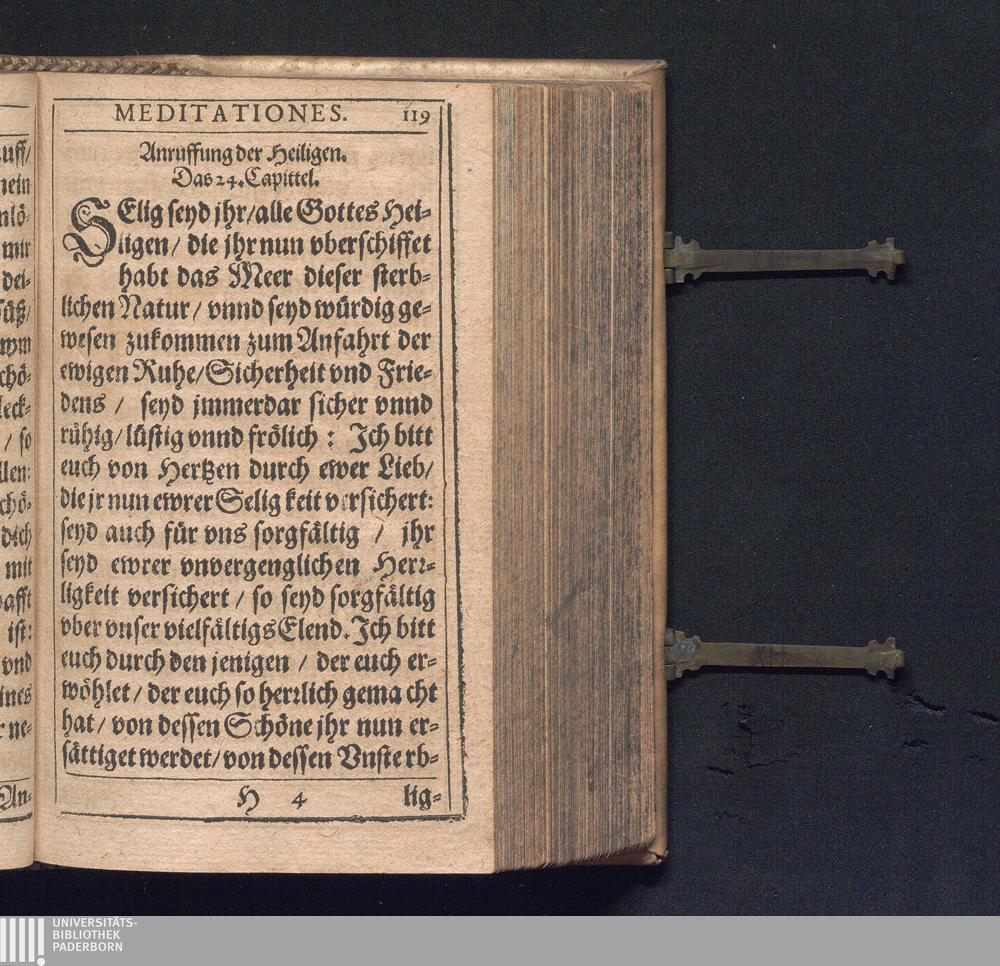 MEDITATIONES. 119
Anruffung der Heiligen.
Das 24. Capittel.
SElig seyd jhr/alle Gottes Hei-
ligen/ die jhr nun vberschiffet
habt das Meer dieser sterb-
lichen Natur/ vnnd seyd würdig ge-
wesen zukommen zum Anfahrt der
ewigen Ruhe/Sicherheit vnd Frie-
dens / seyd jmmerdar sicher vnnd
rühig/lüstig vnnd frölich: Ich bitt
euch von Hertzen durch ewer Lieb/
die jr nun ewrer Seligkeit versichert:
seyd auch für vns sorgfältig / jhr
seyd ewrer vnvergenglichen Herr-
ligkeit versichert / so seyd sorgfältig
vber vnser vielfältigs Elend. Ich bitt
euch durch den jenigen / der euch er-
wöhlet/ der euch so herrlich gemacht
hat/ von dessen Schöne jhr nun er-
sättiget werdet/ von dessen Vnsterb-
H 4 lig-
uff/
mein
nlö-
mir
dei-
süß/
chö-
leck-
/ so
llen:
chö-
dich
mit
afft
ist:
vnd
ines
r ne-
An-
UNIVERSITÄTS-
BIBLIOTHEK
PADERBORN